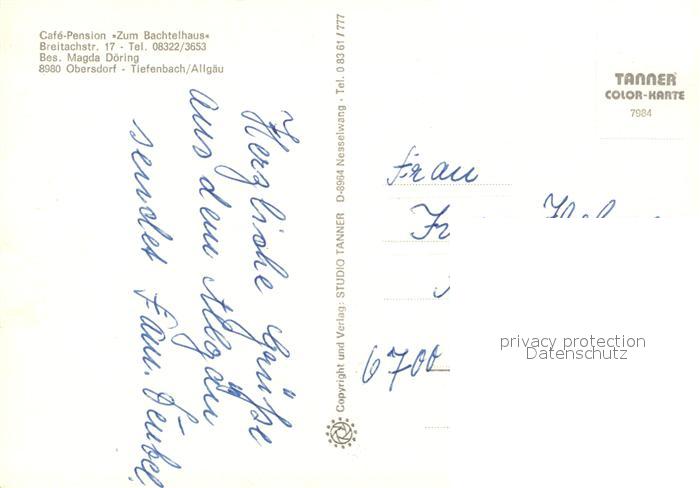 Café-Pension »Zum Bachtelhaus«
Breitachstr. 17 - Tel. 08322/3653
Bes. Magda Döring
8980 Obersdorf - Tiefenbach/Allgäu
Herzliche Grüße
aus dem Allgäu
sendet Fam. Teubel.
Copyright und Verlag: STUDIO TANNER D-8964 Nesselwang · Tel. 0 83 61 / 777
TANNER
COLOR-KARTE
7984
Frau
6700
privacy protection
Datenschutz